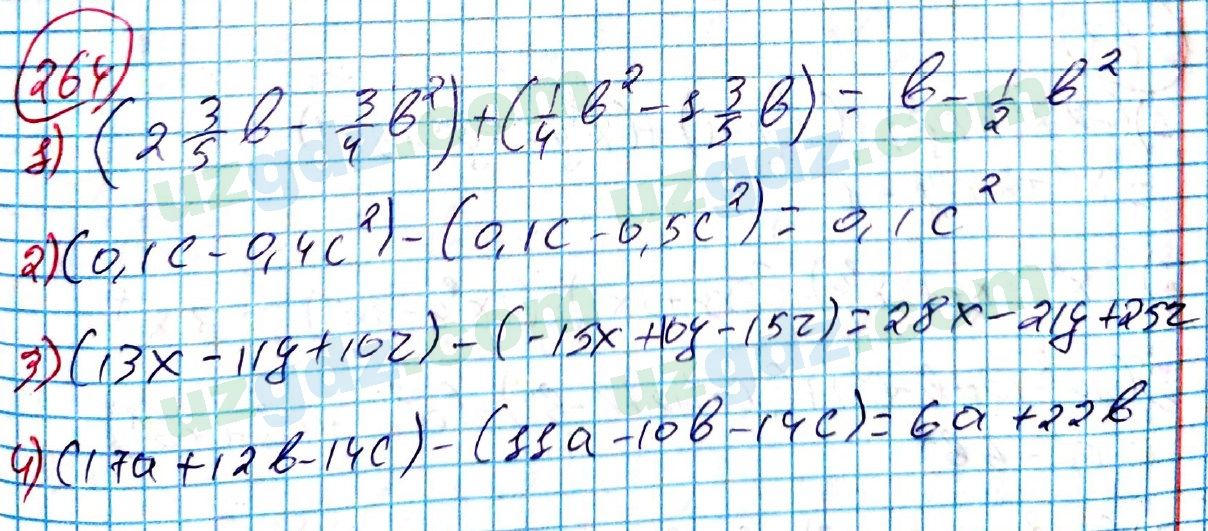 264
1) (2 3/5 b - 3/4 b²) + (1/4 b² - 1 3/5 b) = b - 1/2 b²
2) (0,1c - 0,4c²) - (0,1c - 0,5c²) = 0,1c²
3) (13x - 11y + 10z) - (-15x + 10y - 15z) = 28x - 21y + 25z
4) (17a + 12b - 14c) - (11a - 10b - 14c) = 6a + 22b
uzgdz.com
uzgdz.com
uzgdz.com
uzgdz.com